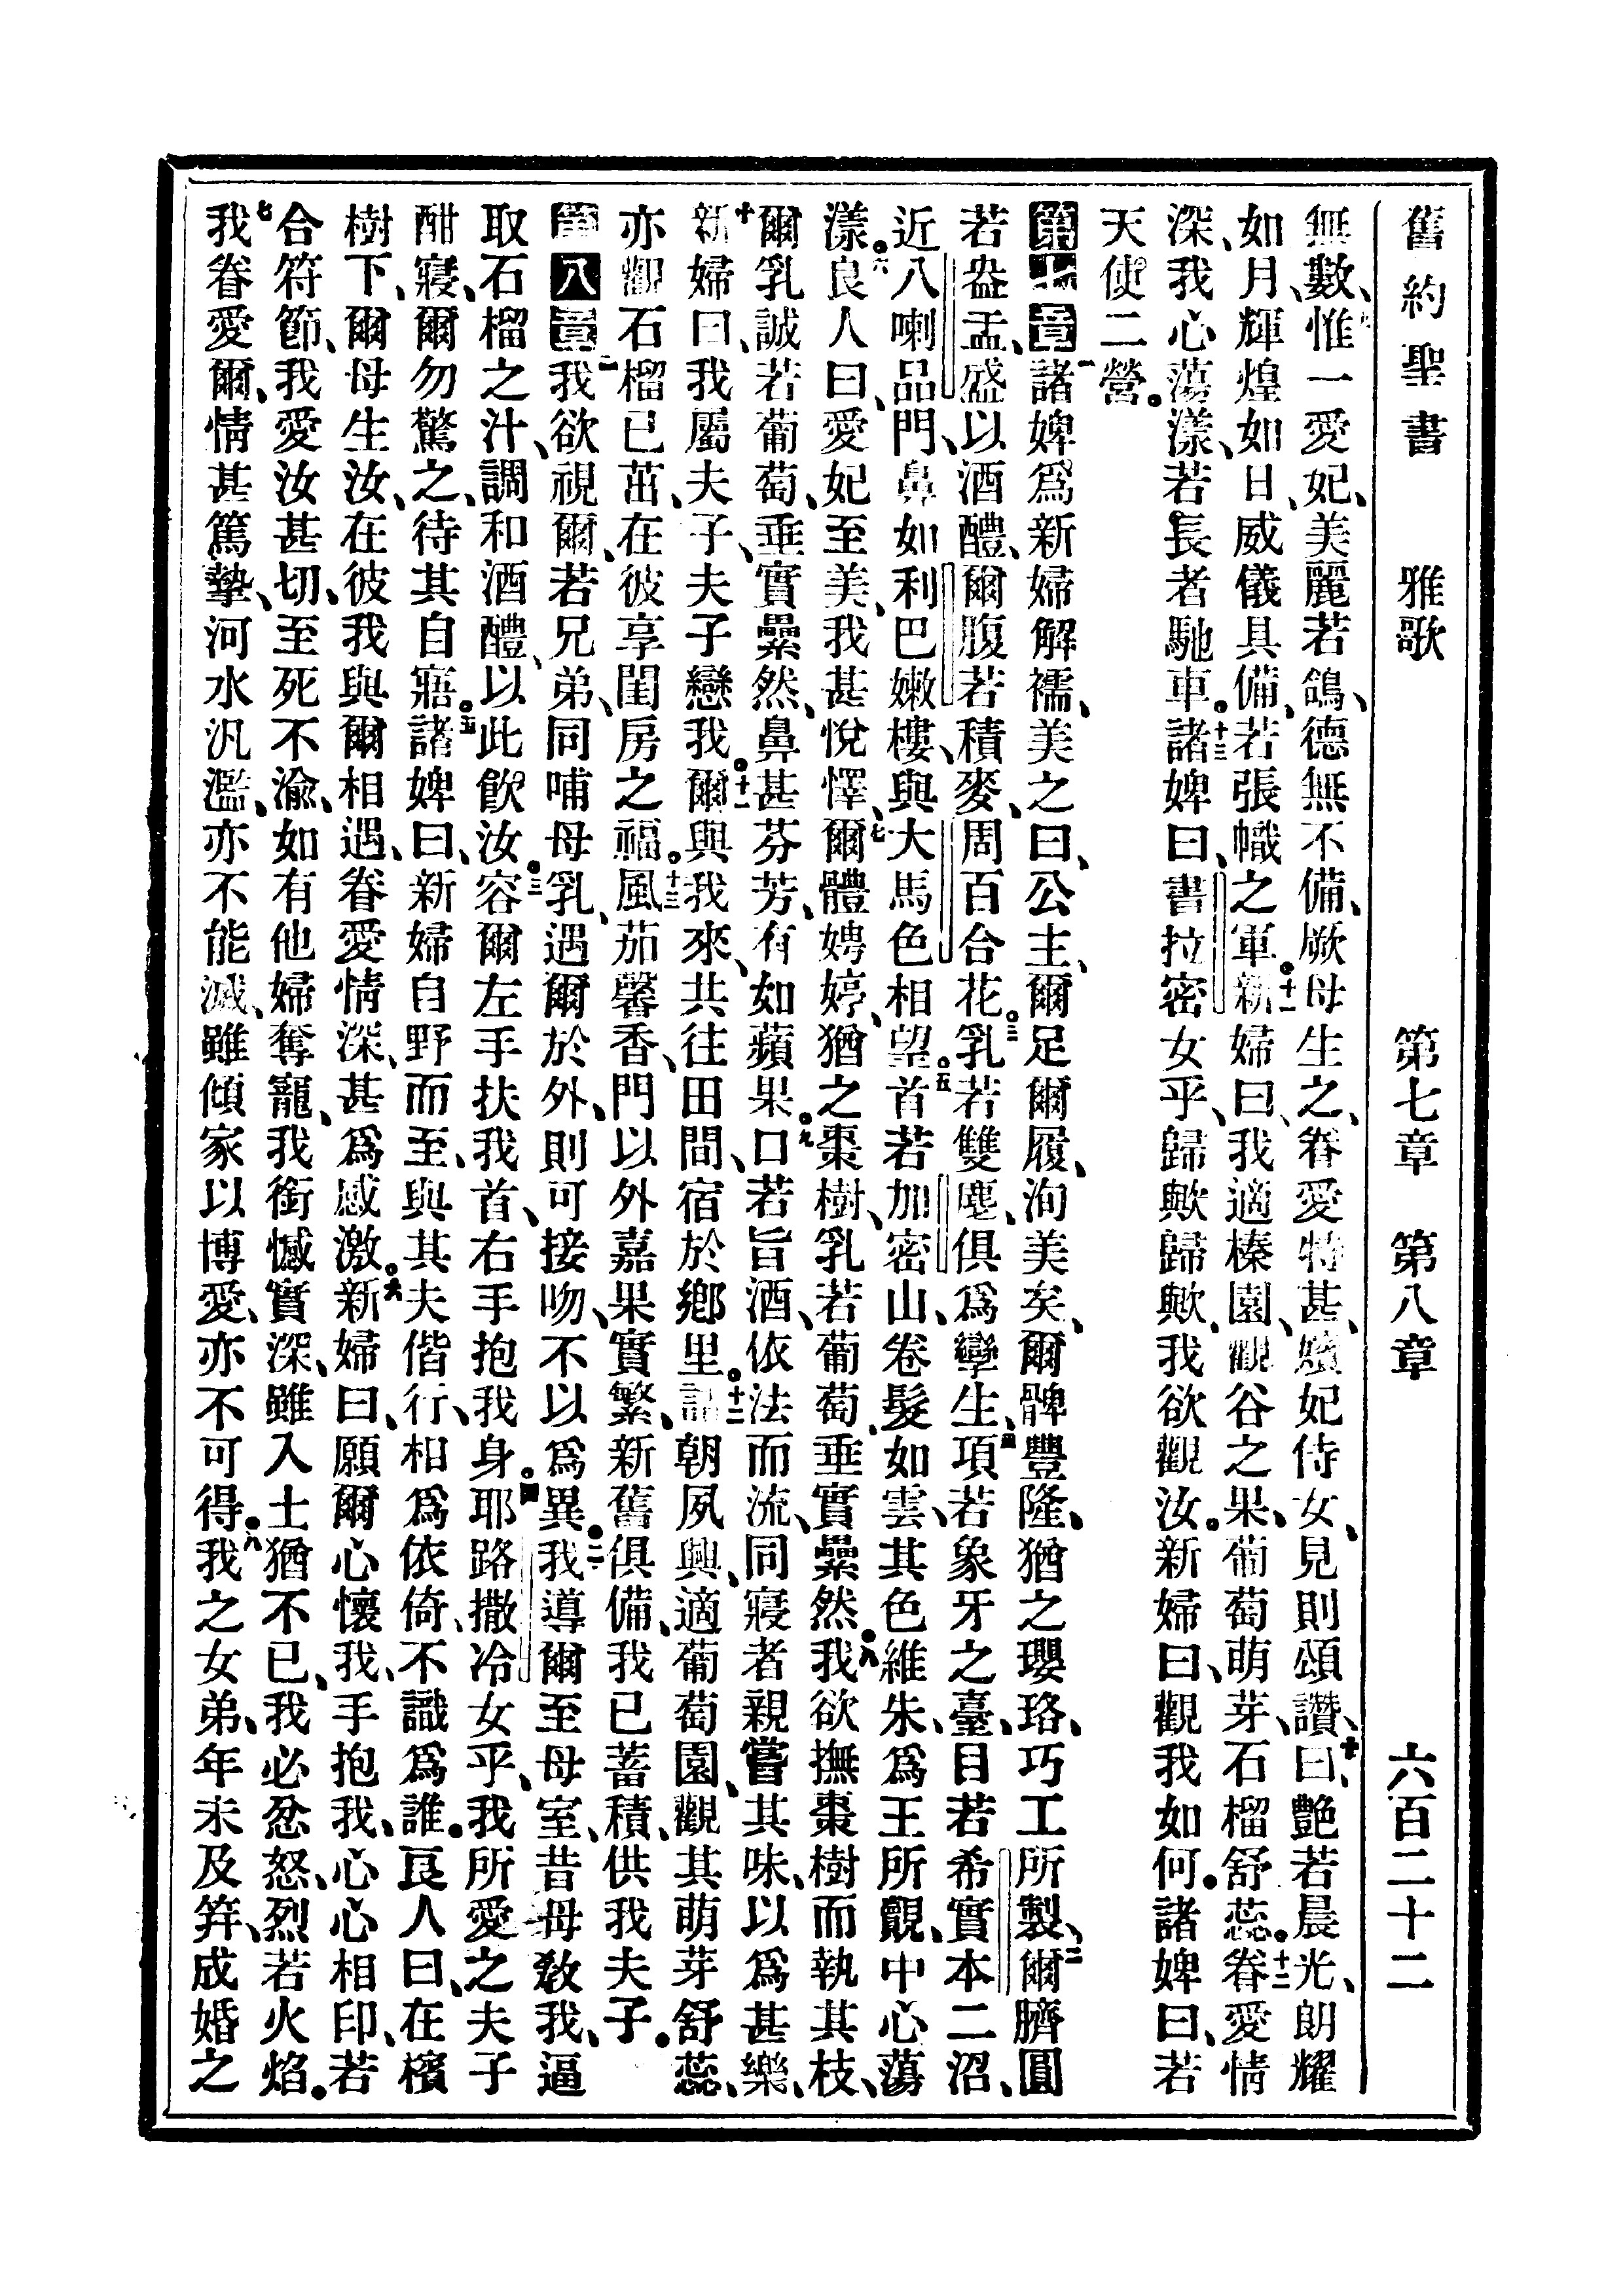 舊約聖書 雅歌 第七章 第八章 六百二十二
無數、九惟一愛妃、美麗若鴿、德無不備、厥母生之、眷愛特甚、嬪妃侍女、見則頌讚、十曰、艷若晨光、朗耀
如月、輝煌如日、威儀具備、若張幟之軍。十一新婦曰、我適榛園、觀谷之果、葡萄萌芽、石榴舒蕊。十二眷愛情
深、我心蕩漾、若長者馳車。十三諸婢曰、書拉密女乎、歸歟歸歟、我欲觀汝。新婦曰、觀我如何。諸婢曰、若
天使二營。
第七章一諸婢爲新婦解襦、美之曰、公主、爾足爾履、洵美矣、爾髀豐隆、猶之瓔珞、巧工所製、二爾臍圓
若盎盂、盛以酒醴、爾腹若積麥、周百合花。三乳若雙麈、俱爲孿生、四項若象牙之臺、目若希實本二沼、
近八喇品門、鼻如利巴嫩樓、與大馬色相望。五首若加密山、卷髮如雲、其色維朱、爲王所觀、中心蕩
漾。六良人曰、愛妃至美、我甚悅懌、七爾體娉婷、猶之棗樹、乳若葡萄、垂實纍然。八我欲撫棗樹而執其枝、
爾乳誠若葡萄、垂實纍然、鼻甚芬芳、有如蘋果。九口若旨酒、依法而流、同寢者親嘗其味、以爲甚樂、
十新婦曰、我屬夫子、夫子戀我。十一爾與我來、共往田間、宿於鄉里。十二詰朝夙興、適葡萄園、觀其萌芽舒蕊、
亦觀石榴已茁、在彼享閨房之福。十三風茄馨香、門以外嘉果實繁、新舊俱備、我已蓄積、供我夫子。
第八章一我欲視爾、若兄弟、同哺母乳、遇爾於外、則可接吻、不以爲異。二我導爾至母室、昔母敎我、逼
取石榴之汁、調和酒醴、以此飮汝。三容爾左手扶我首、右手抱我身。四耶路撒冷女乎、我所愛之夫子
酣寢、爾勿驚之、待其自寤。五諸婢曰、新婦自野而至、與其夫偕行、相爲依倚、不識爲誰。良人曰、在檳
樹下、爾母生汝、在彼我與爾相遇、眷愛情深、甚爲感激。六新婦曰、願爾心懷我、手抱我、心心相印、若
合符節、我愛汝甚切、至死不渝、如有他婦奪寵、我銜憾實深、雖入土猶不已、我必忿怒、烈若火焰。
七我眷愛爾、情甚篤摯、河水汎濫、亦不能滅、雖傾家以博愛、亦不可得。八我之女弟、年未及笄、成婚之